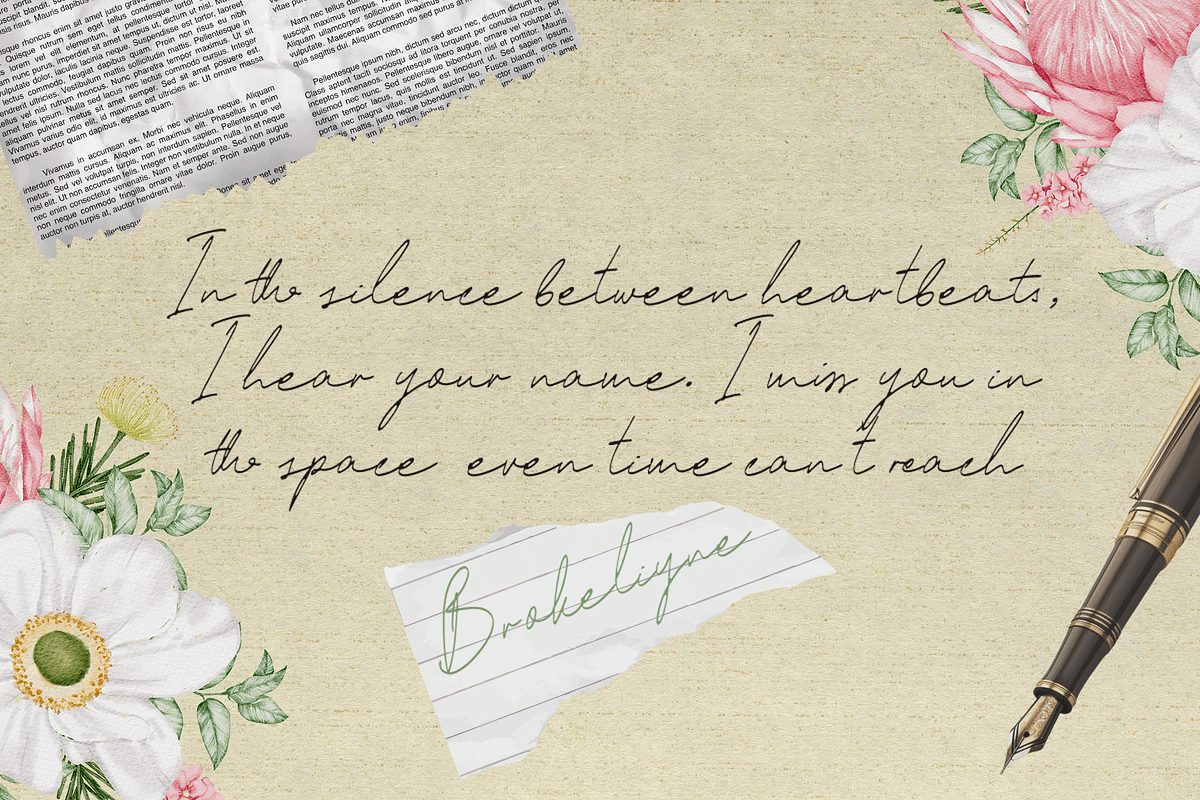 rhoncus enim sit amet justo gravida
lorem vel elit elementum, at pellentesque
nunc purus, imperdiet sit amet tempus ut, dictum ut nisl.
vulputate dolor, iaculis lacinia neque. Suspendisse est tortor, laoreet
lectus commodo, feugiat dapibus quam. Proin non risus eu nibh
ultricies. Vestibulum mattis sollicitudin mattis. Pellentesque in
vel nisl rutrum rhoncus. Nunc pharetra tempor maximus. Ut sit
amet felis ipsum. Nulla sed lacus nec lectus commodo cursus. Integer
aliquam pulvinar metus sit amet semper. Sed sit amet posuere est.
Vivamus varius odio elit, id maximus est ultricies ac. Ut ornare massa
tempus, auctor quam dapibus, egestas quam.
Vivamus in accumsan ex. Morbi nec vehicula neque. Aliquam
interdum mattis cursus. Aliquam ac maximus elit. Phasellus in enim
metus. Sed vel volutpat turpis, non interdum sapien. Pellentesque vel
nisl elit. Ut non accumsan felis. Integer non vestibulum nulla. In et neque
nec enim consectetur venenatis. Nam et semper ante. Sed non augue
non neque commodo fringilla ornare vitae dolor. Proin augue purus,
auctor non turpis at, auctor hendrerit nisl.
Nam nec tellus
suscipit maximus tempus.
Aliquam ullamcorper sollicitudin
vulputate. Maecenas accumsan maximus
quis sagittis dui. Aliquam commodo sed purus at
Pellentesque ipsum nibh, dictum sed arcu nec, dictum dictum
Class aptent taciti sociosqu ad litora torquent per conubia
inceptos himenaeos. Pellentesque libero augue, ornare vel
euismod nec nunc. Sed scelerisque bibendum nisl et porttitor. Mauris
rutrum tempor lacus, quis mollis est tincidunt ut. Sed sapien ipsum,
porta nec magna vitae, tincidunt auctor leo. Fusce blandit, eros nec
mattis, justo neque bibendum nibh,
In the silence between heartbeats,
I hear your name. I miss you in
the space even time can't reach
Brokeliyne